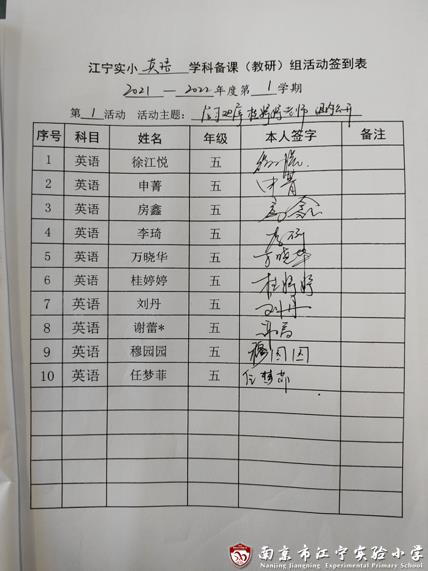 江宁实小 英语 学科备课（教研）组活动签到表
2021 — 2022年度第 1 学期
第 1 活动 活动主题：
序号 科目 姓名 年级 本人签字 备注
1 英语 徐江悦 五
2 英语 申菁 五 申菁
3 英语 房鑫 五 房鑫
4 英语 李琦 五 李琦
5 英语 万晓华 五 万晓华
6 英语 桂婷婷 五 桂婷婷
7 英语 刘丹 五 刘丹
8 英语 谢蕾* 五
9 英语 穆园园 五 穆园园
10 英语 任梦菲 五 任梦菲
南京市江宁实验小学
Nanjing Jiangning Experimental Primary School